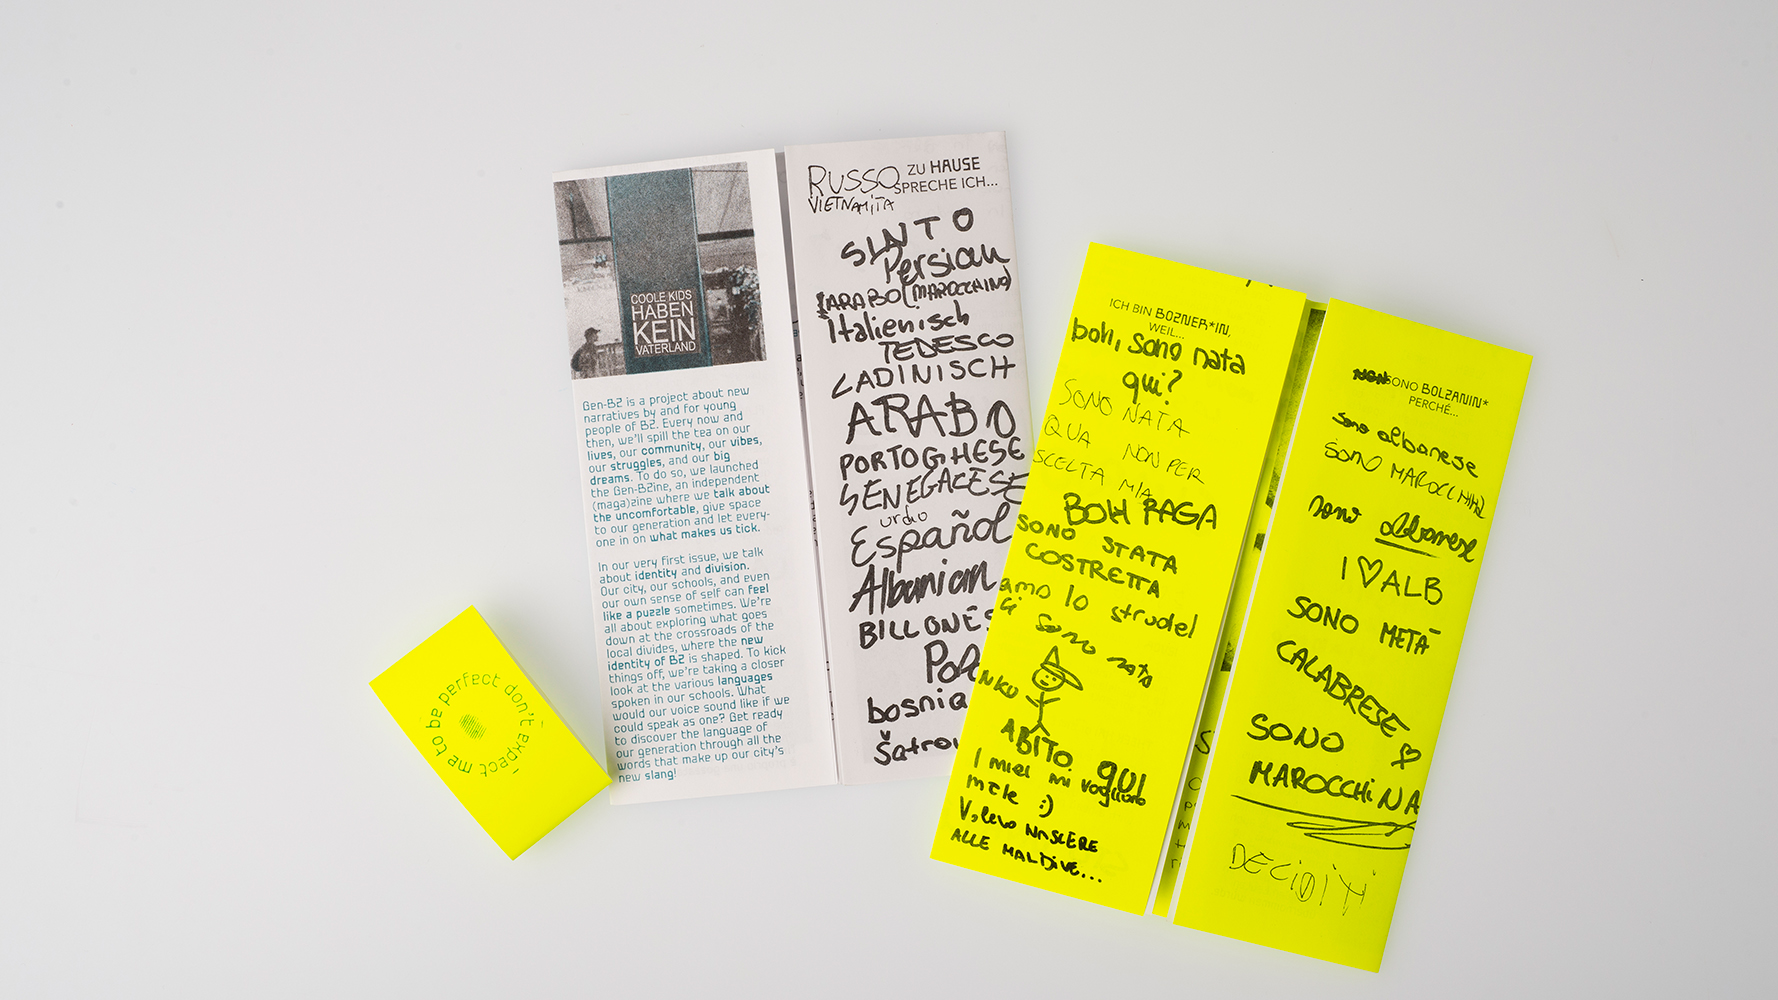 COOLE KIDS
HABEN
KEIN
VATERLAND
Gen-BZ is a project about new
narratives by and for young
people of BZ. Every now and
then, we'll spill the tea on our
lives, our community, our vibes,
our struggles, and our big
dreams. To do so, we launched
the Gen-BZine, an independent
(maga)zine where we talk about
the uncomfortable, give space
to our generation and let every-
one in on what makes us tick.
In our very first issue, we talk
about identity and division.
Our city, our schools, and even
our own sense of self can feel
like a puzzle sometimes. We're
all about exploring what goes
down at the crossroads of the
local divides, where the new
identity of BZ is shaped. To kick
things off, we're taking a closer
look at the various languages
spoken in our schools. What
would our voice sound like if we
could speak as one? Get ready
to discover the language of
our generation through all the
words that make up our city's
new slang!
ZU HAUSE
SPRECHE ICH...
RUSSO
VIETNAMITA
SINTO
Persian
ARABO (MAROCCHINO)
Italienisch
TEDESCO
LADINISCH
ARABO
PORTOGHESE
SENEGALESE
urdu
Español
Albanian
BILLONES
Pol
bosnia
Šatrov
don't expect me to be perfect
ICH BIN BOZNER*IN,
WEIL...
boh, sono nata
qui?
SONO NATA
QUA NON PER
SCELTA MIA
BOH RAGA
SONO STATA
COSTRETTA
amo lo strudel
Ci sono nato
ABITO QUI
I miei mi vogliono
male :)
Volevo NASCERE
ALLE MALDIVE...
SONO BOLZANIN*
PERCHÉ...
sono albanese
SONO MAROCCHINA
sono albanese
I ♡ ALB
SONO METÀ
CALABRESE ♡
SONO
MAROCCHINA
DECIDITI